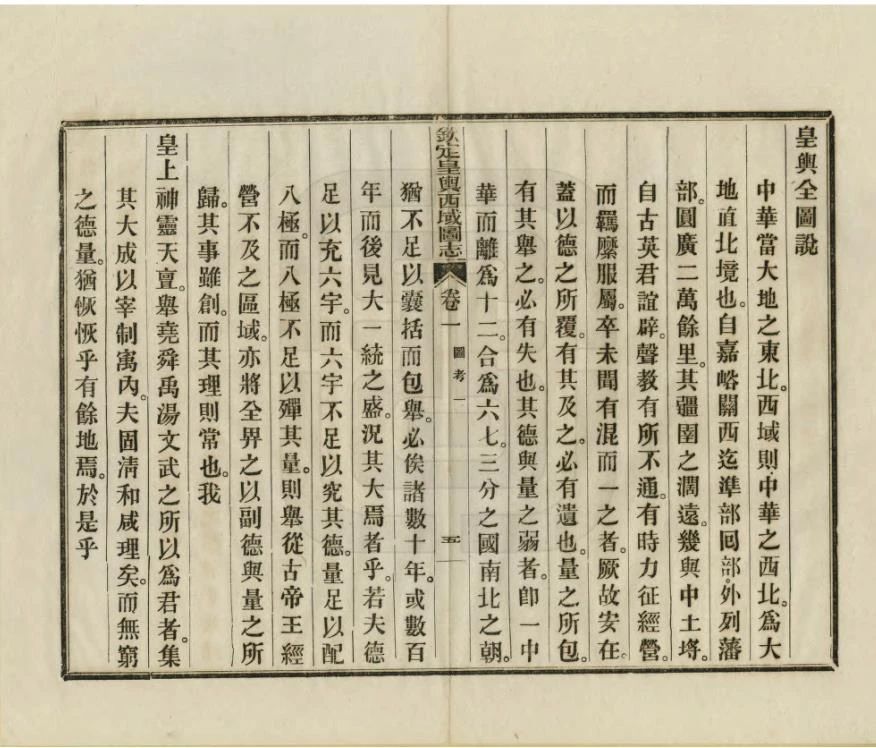 皇輿全圖說
中華當大地之東北。西域則中華之西北。爲大
地直北境也。自嘉峪關西迄準部囘部。外列藩
部。圓廣二萬餘里。其疆圉之濶遠。幾與中土埓。
自古英君誼辟。聲教有所不通。有時力征經營。
而羈縻服屬。卒未聞有混而一之者。厥故安在。
蓋以德之所覆。有其及之。必有遺也。量之所包。
有其舉之。必有失也。其德與量之弱者。卽一中
華而離爲十二。合爲六七。三分之國南北之朝。
欽定皇輿西域圖志 卷一 圖考一 五
猶不足以囊括而包舉。必俟諸數十年。或數百
年而後見大一統之盛。況其大焉者乎。若夫德
足以充六宇。而六宇不足以究其德。量足以配
八極。而八極不足以殫其量。則舉從古帝王經
營不及之區域。亦將全畀之以副德與量之所
歸。其事雖創。而其理則常也。我
皇上神靈天亶。舉堯舜禹湯文武之所以爲君者。集
其大成以宰制寓內。夫固淸和咸理矣。而無窮
之德量。猶恢恢乎有餘地焉。於是乎